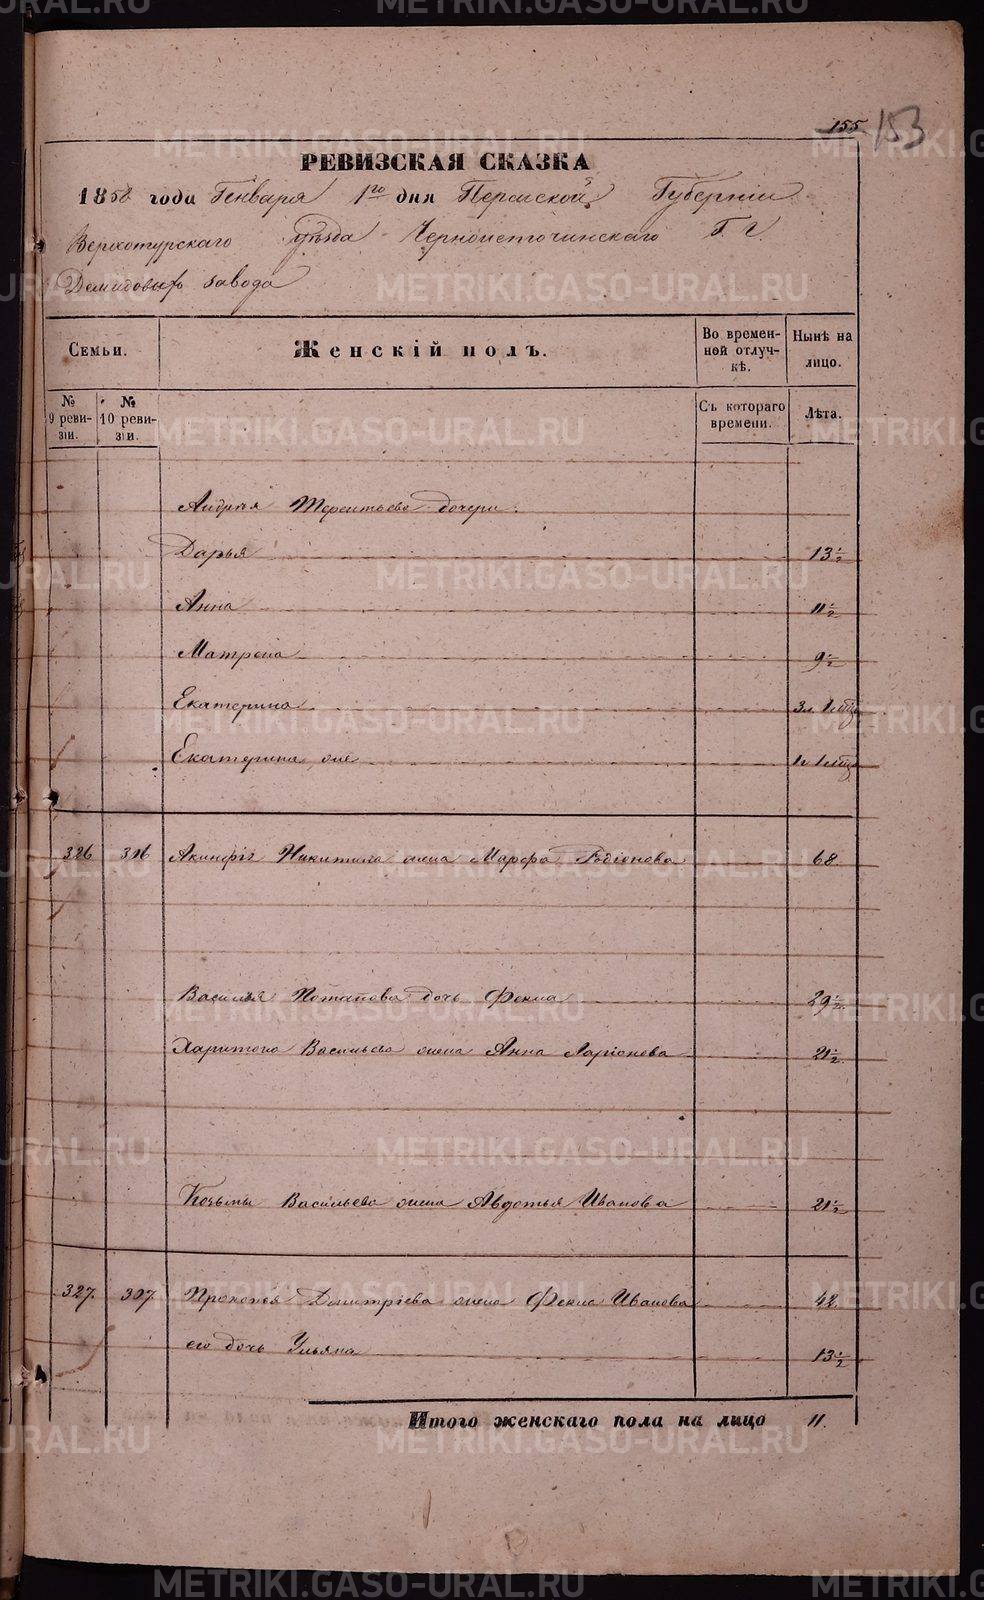 155 153
РЕВИЗСКАЯ СКАЗКА
1858 года Генваря 1го дня Пермской Губерніи
Верхотурскаго уѣзда Черноисточинскаго Г. г.
Демидовыхъ завода
Семьи. Женскій полъ. Во временной отлучкѣ. Нынѣ на лицо.
№ 9 ревизіи. № 10 ревизіи. Съ котораго времени. Лѣта.
Андрея Терентьева дочери:
Дарья 13 ½
Анна 11 ½
Матрена 9 ½
Екатерина 3 л 1 мѣц
Екатерина же 1 л 1 мѣц
326 316 Акинфія Никитина жена Марфа Родіонова 68
Василья Потапова дочь Фекла 29 ½
Харитона Васильева жена Анна Ларіонова 21 ½
Козьмы Васильева жена Авдотья Иванова 21 ½
327. 317 Прокопья Дмитріева жена Фекла Иванова 42
его дочь Ульяна 13 ½
Итого женскаго пола на лицо 11.
METRIKI.GASO-URAL.RU